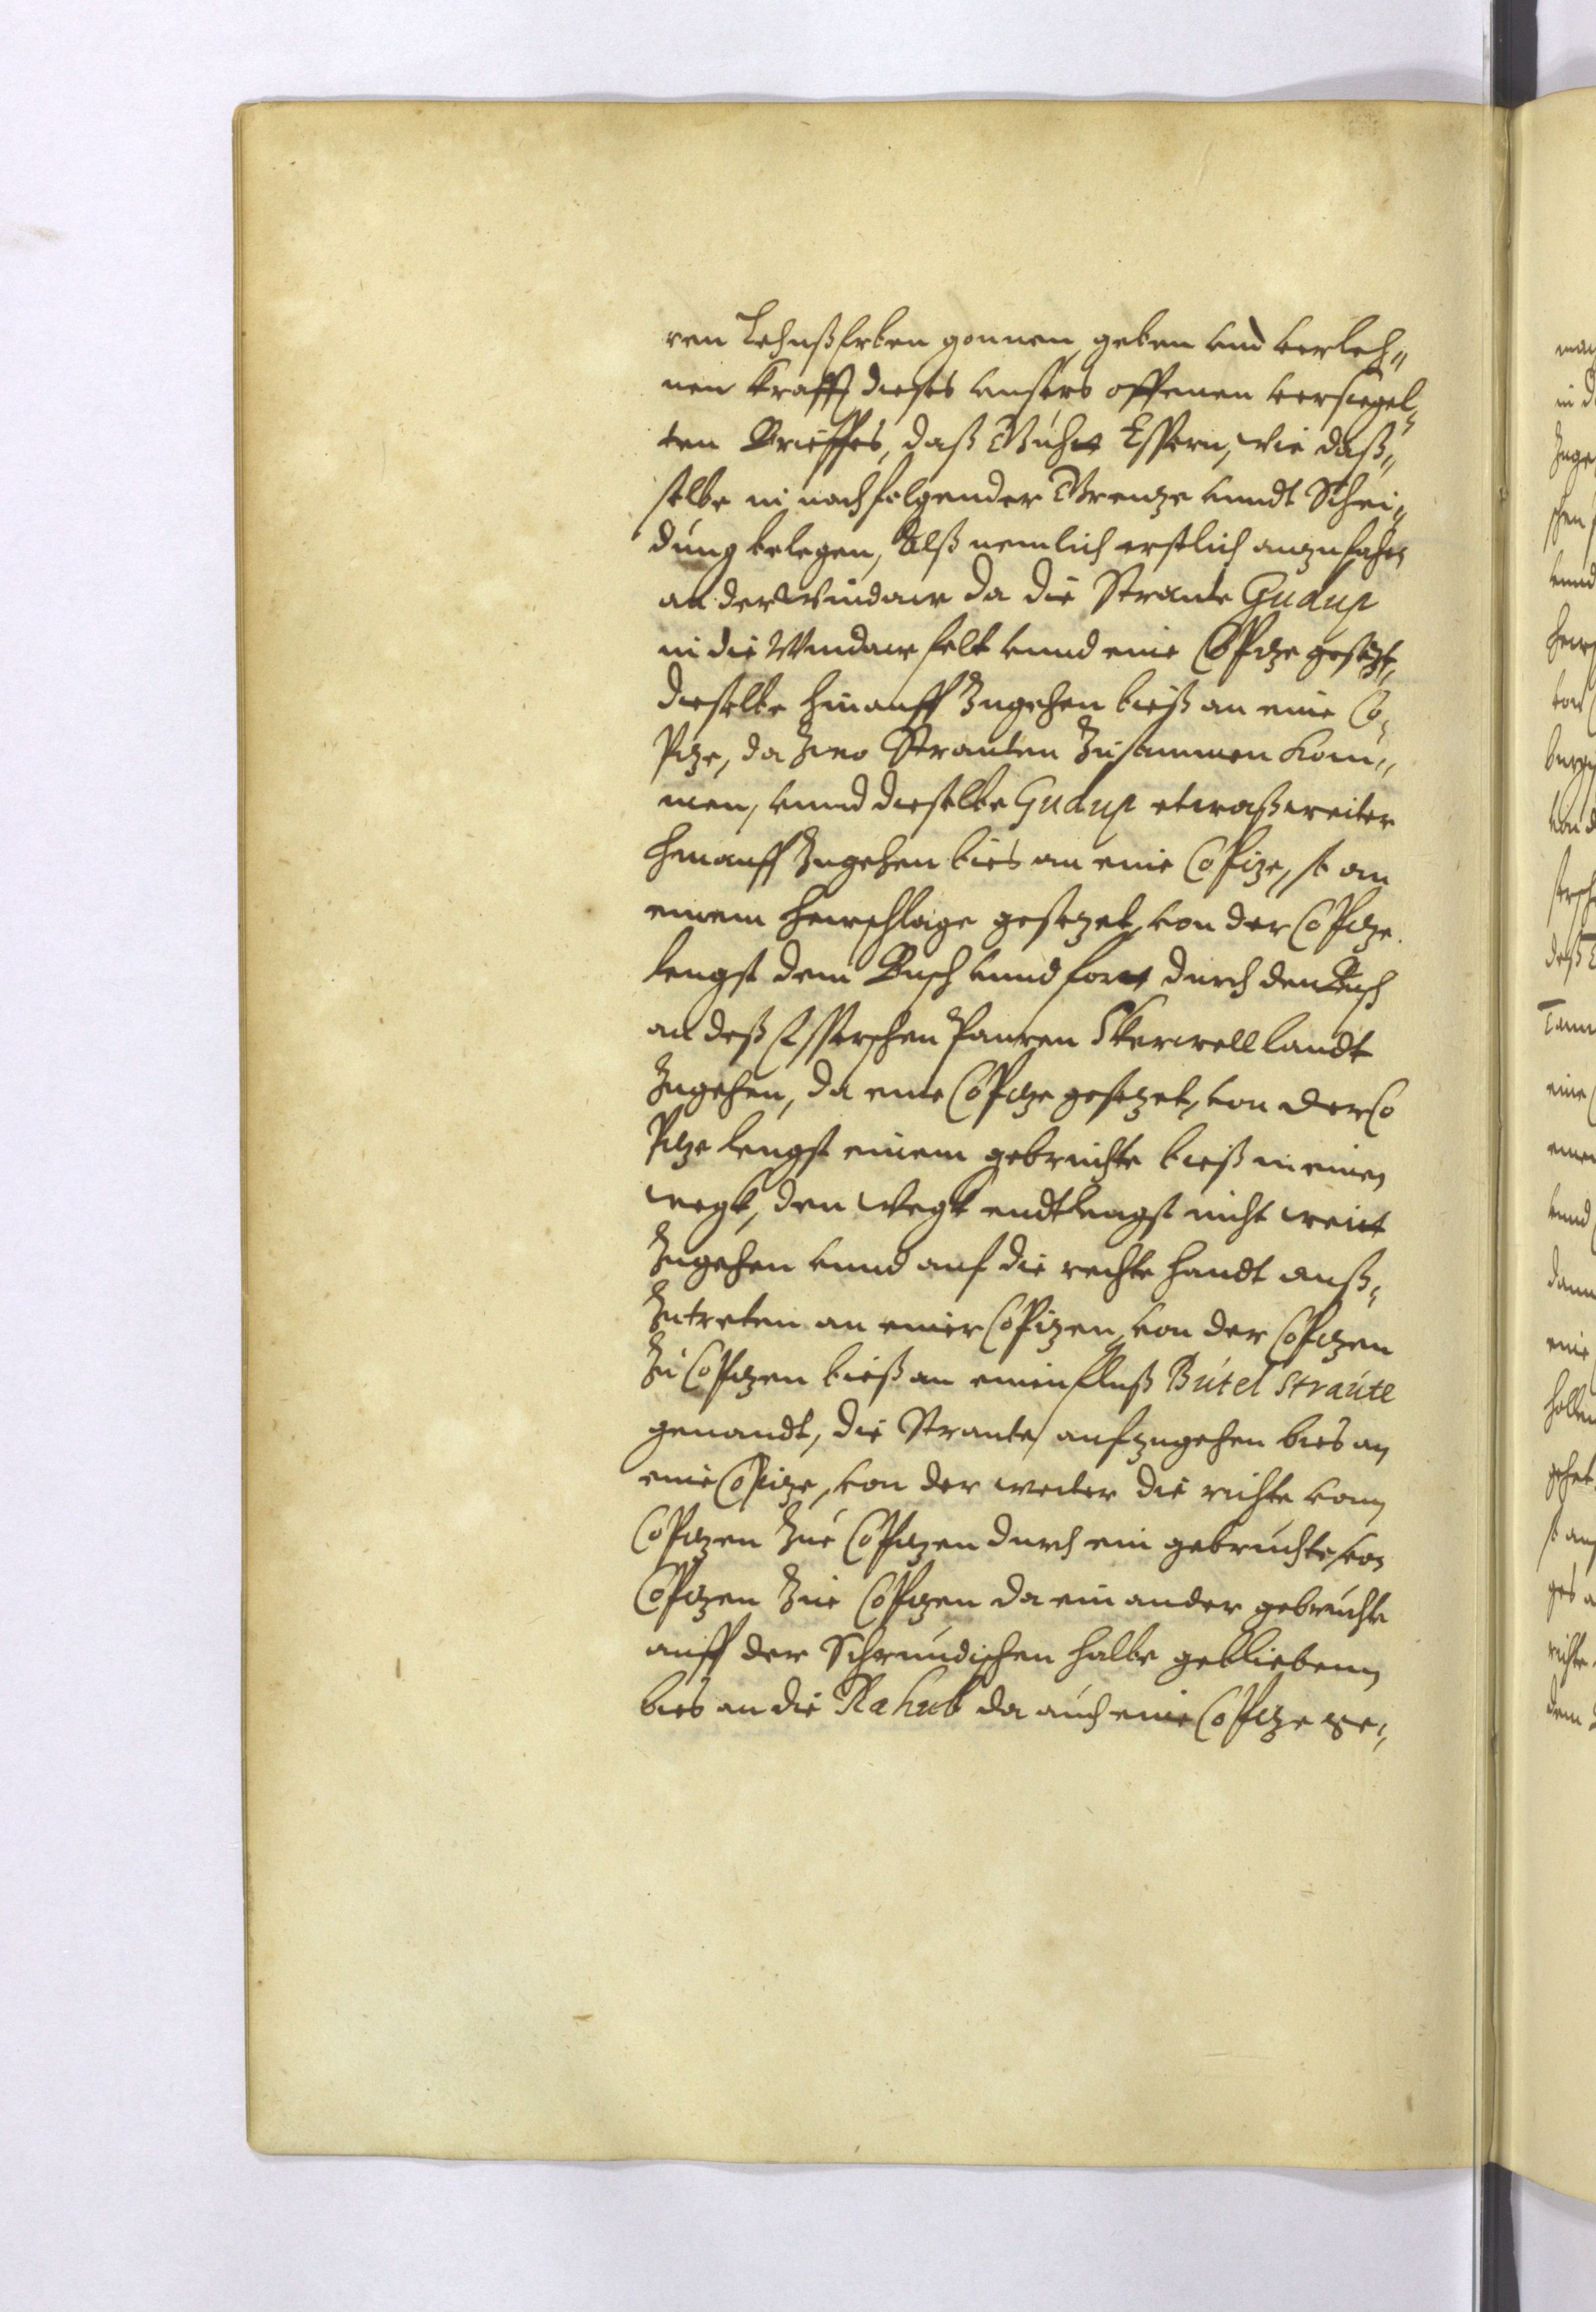 ren Lehnßerben gonnen, geben und verleh„
nen krafft dieses unsers offenen versiegel„
ten Brieffes, daß Guht Essern, wie daß„
selbe in nachfolgender Grenze unndt Schei„
dung belegen, Alß nemlich erstlich anzufahen
an der Windaw da die Straute Gudup
in die Windaw felt unnd eine Copize gesezt,
dieselbe hinauff zugehen bieß an eine Co„
pize, da zwo Strauten zusammen kom„
men, unnd dieselbe Gudup etwaß weiter
hinauff zugehen bies an eine Copize, so an
einem Hewschlage gesezet, von der Copize
lengst dem Busch unnd fort durch den Busch
an deß Esserschen Pauren Skerwell landt
zugehen, da eine Copize gesezet, von der Co
pize lengst einem gebruchte bieß in einen
wegk, den wegk endtlengst nicht weitt
zugehen unnd auf die rechte handt auß„
zutreten an einer Copizen, von der Copizen
zu Copizen bieß an einen fluß Butel Straute
genandt, die Straute aufzugehen bies an
eine Copize, von der weiter die richte vonn
Copizen zue Copizen durch ein gebruchte, von
Copizen zue Copizen da ein ander gebruchte
auff der Schrundischen halbe gebliebenn
bies an die Rahub da auch eine Copize ge„